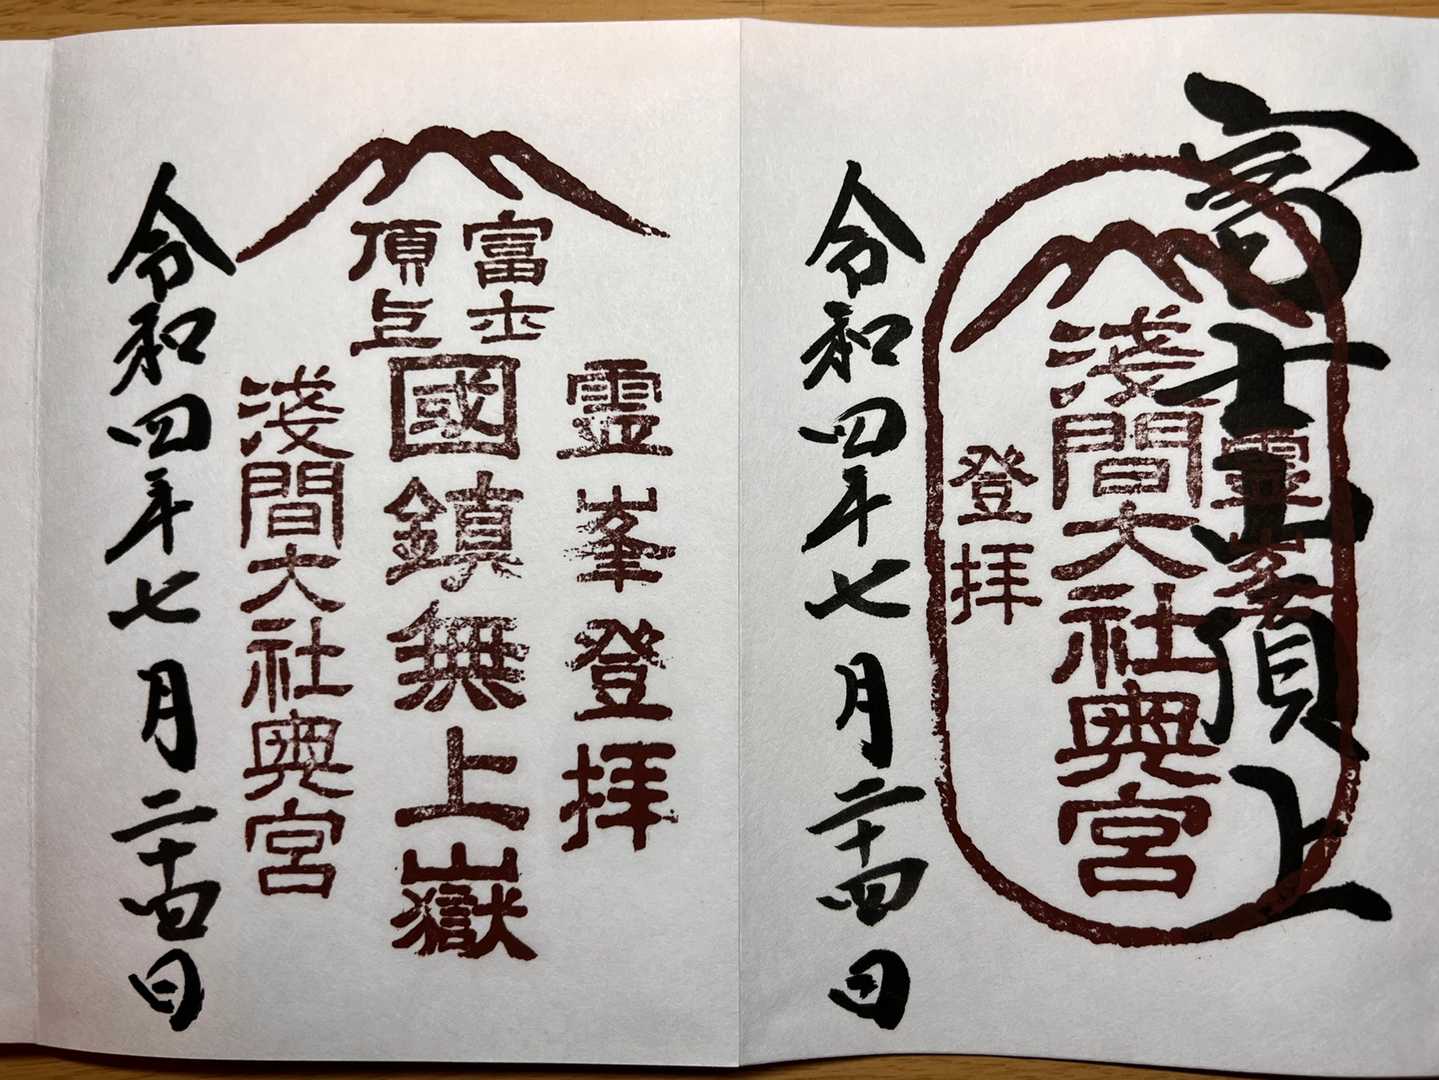 富士山頂上
霊峯
淺間大社奥宮
登拝
令和四年七月二十四日
霊峯登拝
富士
頂上
國鎮無上嶽
淺間大社奥宮
令和四年七月二十四日